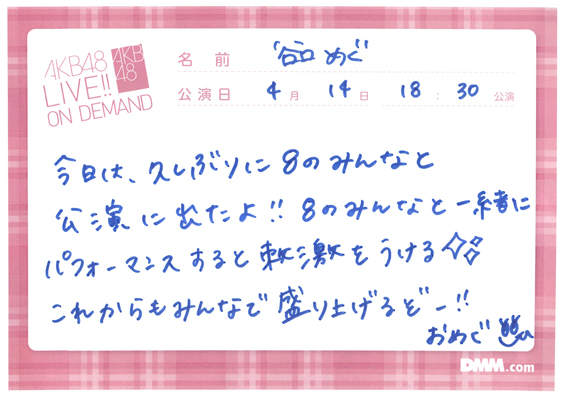 AKB48
LIVE!!
ON DEMAND
AKB
48
名前 谷口めぐ
公演日 4月 14日 18:30 公演
今日は、久しぶりに8のみんなと
公演に出たよ!!8のみんなと一緒に
パフォーマンスすると刺激をうける
これからもみんなで盛り上げるぞー!!
おめぐ
DMM.com